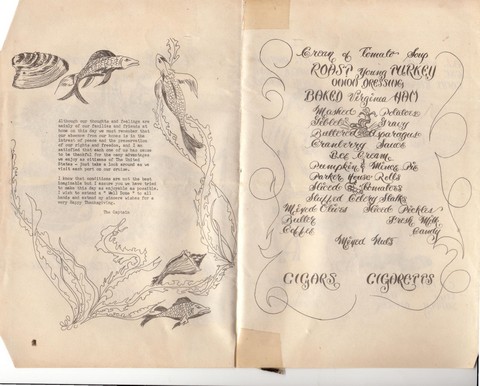 Although our thoughts and feelings are
mainly of our families and friends at
home on this day we must remember that
our absence from our homes is in the
interest of peace and the preservation
of our rights and freedom, and I am
satisfied that each one of us has cause
to be thankful for the many advantages
we enjoy as citizens of The United
States - just take a look around as we
visit each port on our cruise.
I know that conditions are not the best
imaginable but I assure you we have tried
to make this day as enjoyable as possible.
I wish to extend a " Well Done " to all
hands and extend my sincere wishes for a
very Happy Thanksgiving.
The Captain
Cream of Tomato Soup
ROAST Young TURKEY
ONION DRESSING
BAKED Virginia HAM
Mashed Potatoes
Giblet Gravy
Buttered Asparagus
Cranberry Sauce
Ice Cream
Pumpkin & Mince Pie
Parker House Rolls
Sliced Tomatoes
Stuffed Celery Stalks
Mixed Olives Sliced Pickles
Butter Fresh Milk
Coffee Candy
Mixed Nuts
CIGARS CIGARETTS